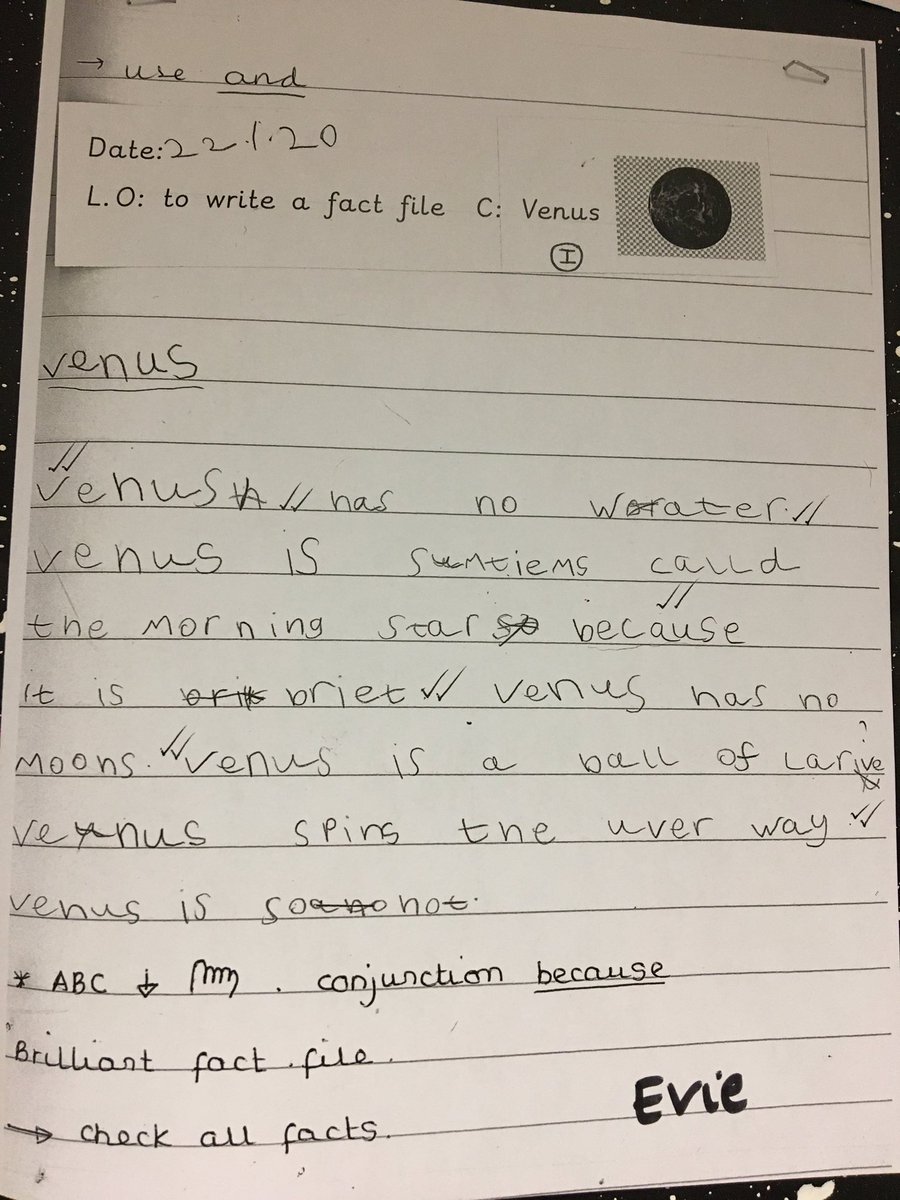 → use and
Date: 22.1.20
L.O: to write a fact file C: Venus
I
venus
Venus has no water.
venus is sumtiems calld
the morning star because
it is briet venus has no
moons. Venus is a ball of larive
?
venus spins the uver way
venus is so hot.
* ABC . conjunction because
Brilliant fact file.
→ check all facts.
Evie